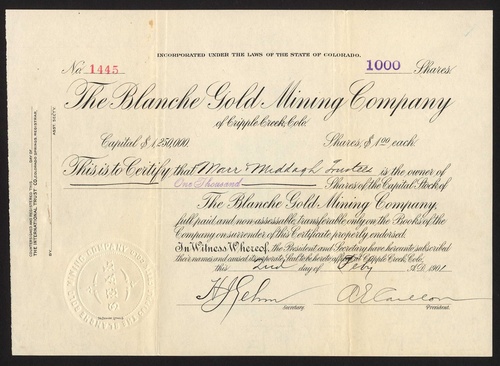 INCORPORATED UNDER THE LAWS OF THE STATE OF COLORADO.
No. 1445
1000 Shares
The Blanche Gold Mining Company
of Cripple Creek, Colo.
Capital $1,250,000. Shares, $1.00 each.
This is to Certify that Marr & Middagh Trustees is the owner of
One Thousand Shares of the Capital Stock of
The Blanche Gold Mining Company,
full paid, and non-assessable, transferable only on the Books of the
Company on surrender of this Certificate, properly endorsed.
In Witness Whereof, the President and Secretary have hereunto subscribed
their names and caused its corporate Seal to be hereto affixed at Cripple Creek, Colo,
this 2nd day of Feby A.D. 1901
Secretary. President.
COUNTERSIGNED AND REGISTERED THIS DAY OF
THE INTERNATIONAL TRUST CO.
BY